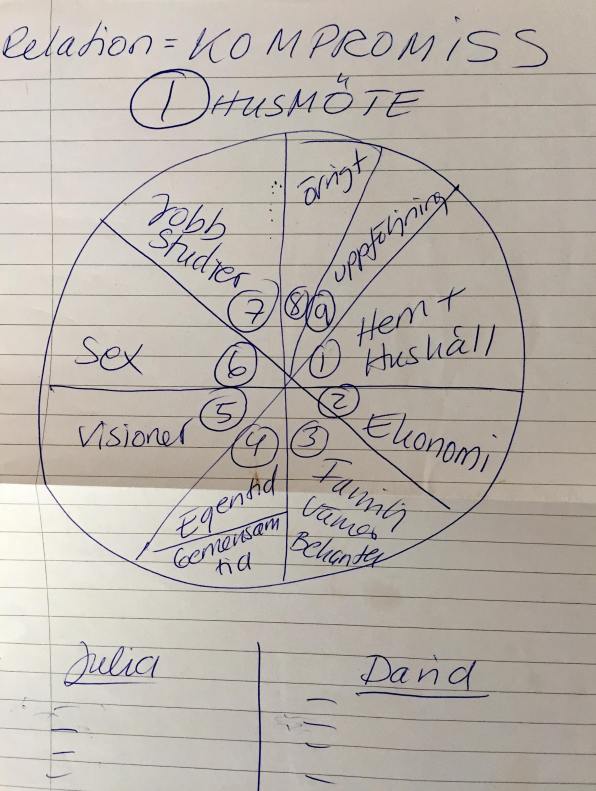 Relation = KOMPROMISS
① HUSMÖTE
① Hem +
Hushåll
② Ekonomi
③ Familj
Vänner
Bekanta
④ Egentid
Gemensam
tid
⑤ Visioner
⑥ Sex
⑦ Jobb
Studier
⑧ övrigt
⑨ uppföljning
Julia
David